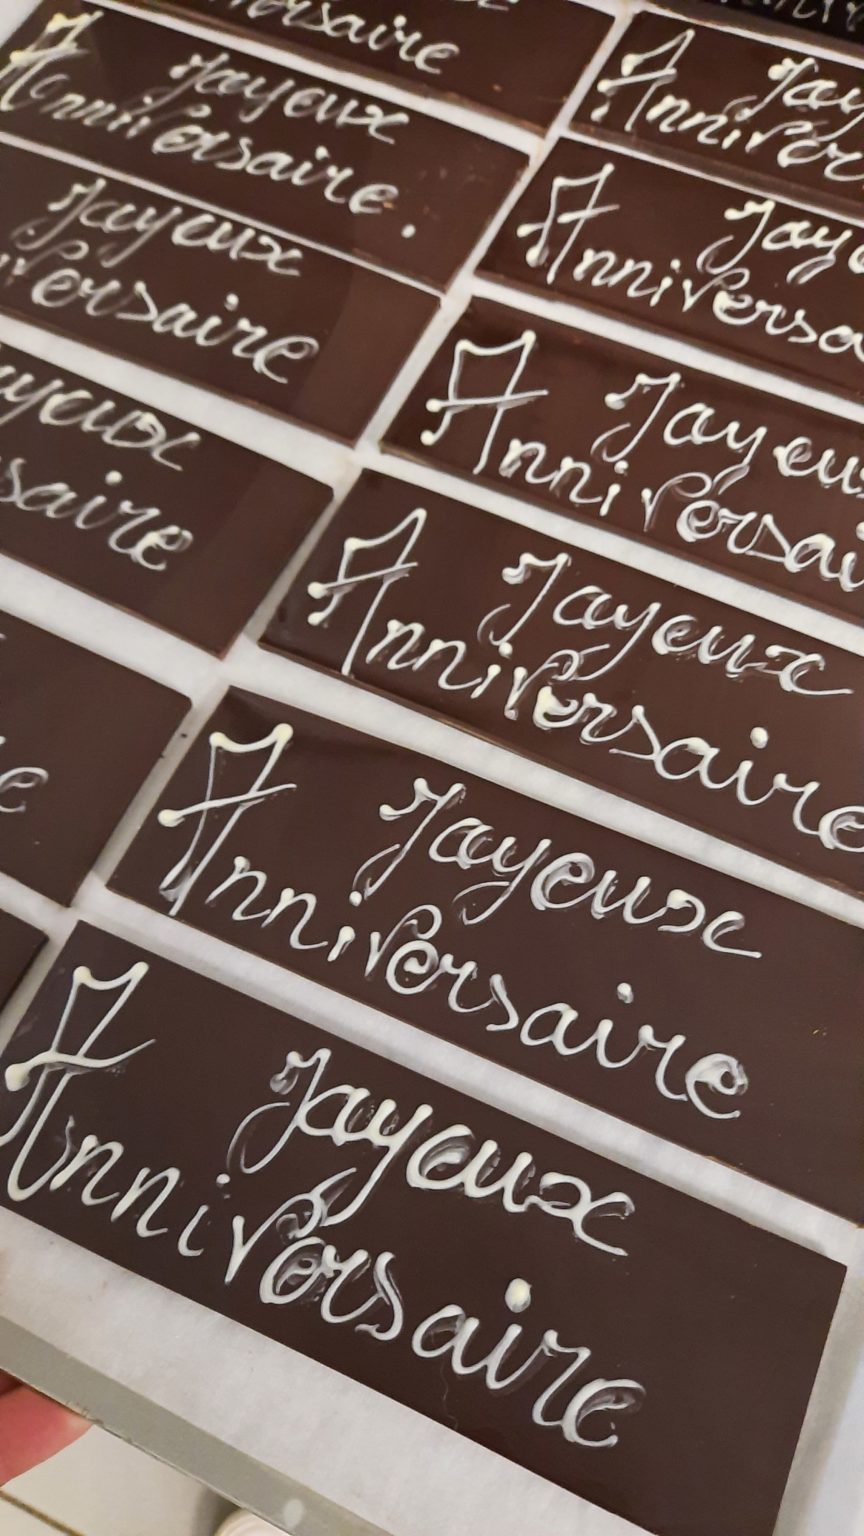 ersaire
Joyeux
Anniversaire.
Joyeux
versaire
yeux
saire
e
Joy
Anniver
Joye
Anniversa
Joyeu
Anniversai
Joyeux
Anniversaire
Joyeux
Anniversaire
Joyeux
Anniversaire